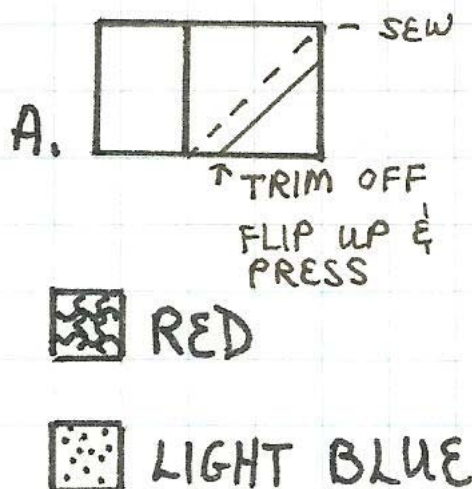 - SEW
A.
↑ TRIM OFF
FLIP UP &
PRESS
RED
LIGHT BLUE